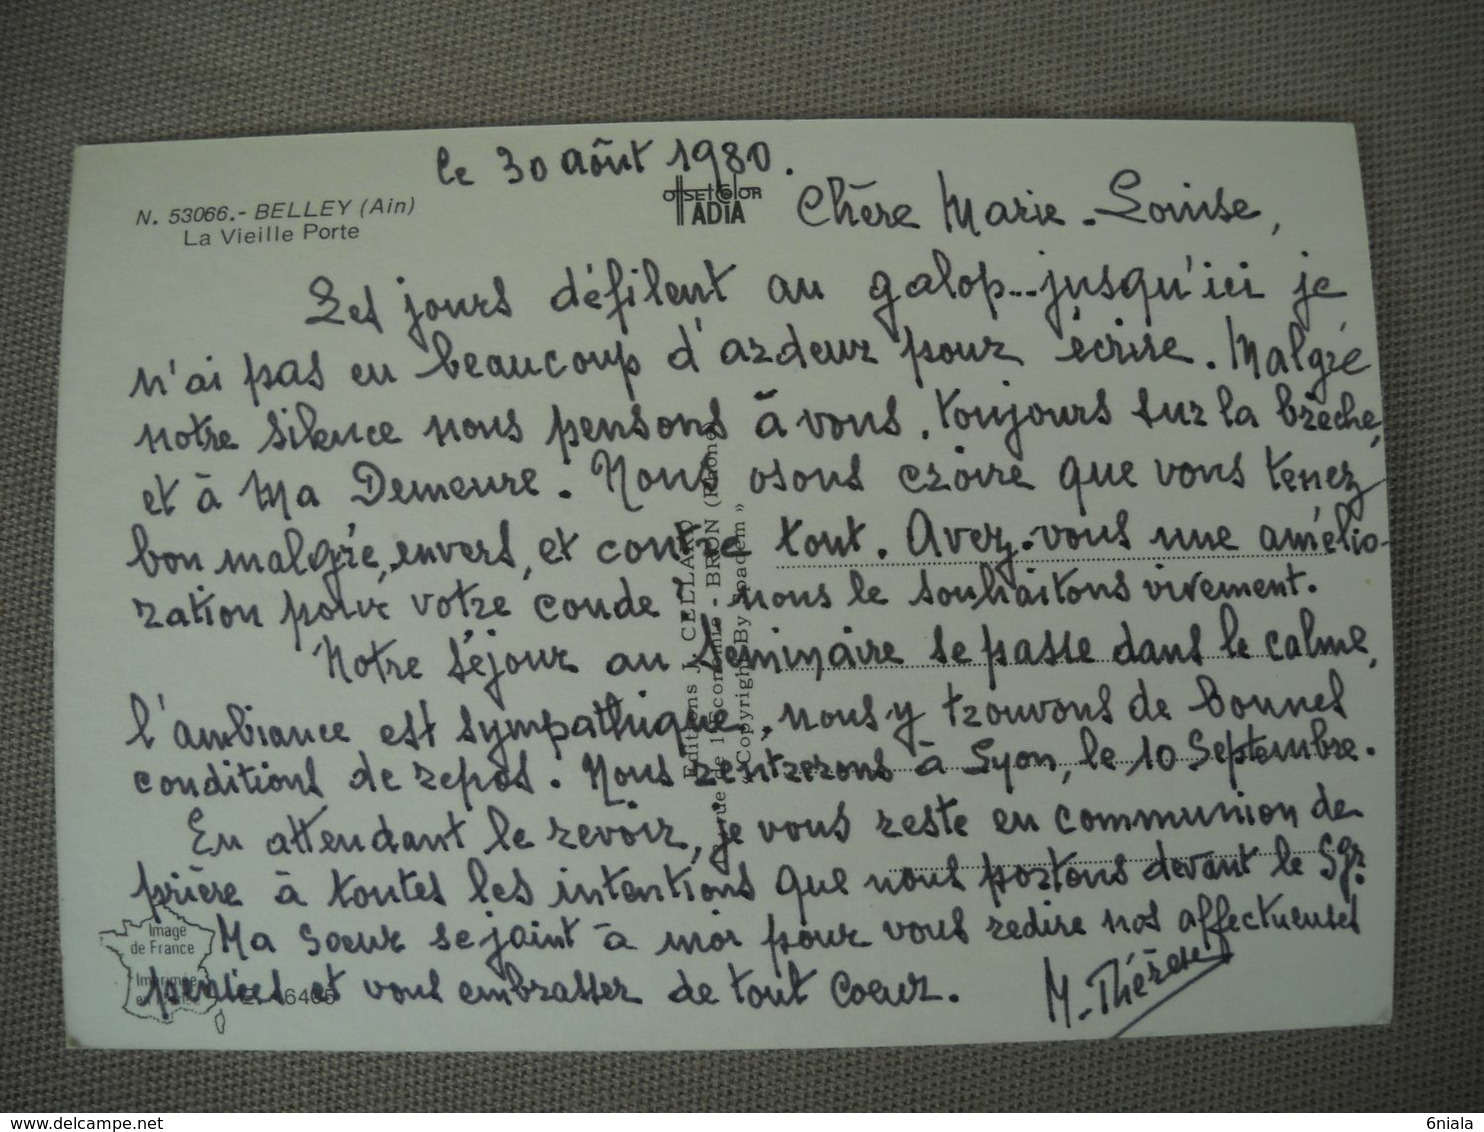 le 30 août 1980.
N. 53066.- BELLEY (Ain)
La Vieille Porte
OFFSET COLOR
ADIA
Chère Marie-Louise,
Les jours défilent au galop... jusqu'ici je
n'ai pas eu beaucoup d'ardeur pour écrire. Malgré
notre silence nous pensons à vous, toujours sur la brèche,
et à Ma Demeure. Nous osons croire que vous tenez
bon malgré, envers, et contre tout. Avez-vous une amélio-
ration pour votre coude? nous le souhaitons vivement.
Notre séjour au Séminaire se passe dans le calme,
l'ambiance est sympathique, nous y trouvons de bonnes
conditions de repos. Nous rentrerons à Lyon, le 10 Septembre.
En attendant le revoir, je vous reste en communion de
prière à toutes les intentions que nous portons devant le Sgr.
Ma Soeur se joint à moi pour vous redire nos affectueuses
pensées et vous embrasser de tout coeur.
M-Thérèse
Editions J. CELLARD
rue de l'Economie - BRON (Rhône)
« Copyright By Spadem »
Image
de France
Imprimée
en France
6405
delcampe.net
6niala